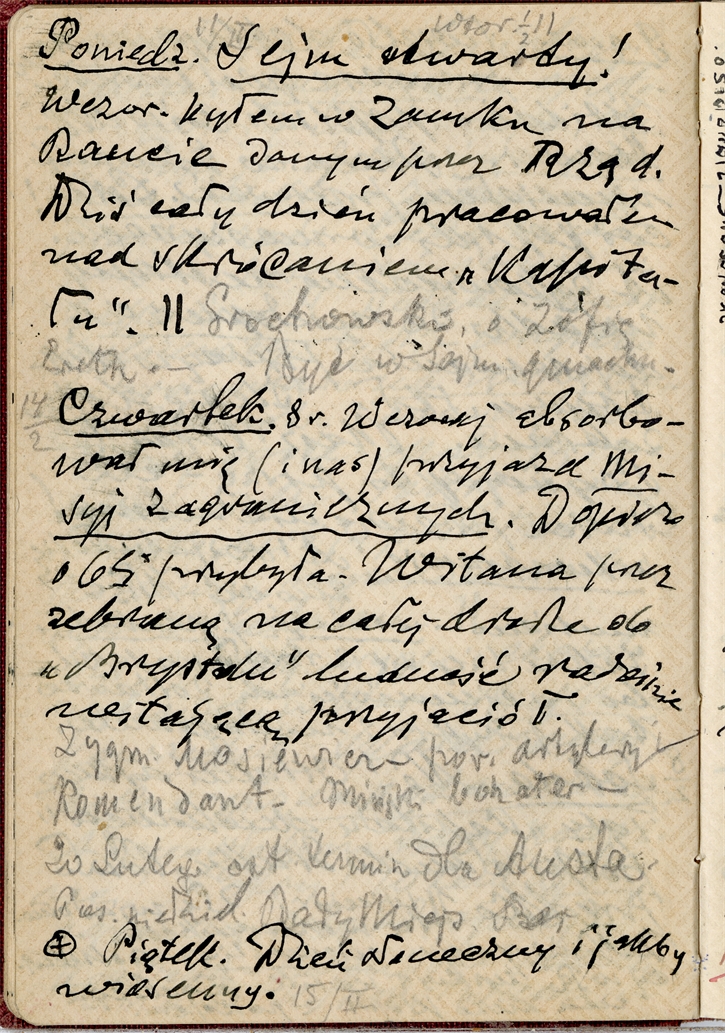 11/II wtor. 11
Poniedz. Sejm otwarty!
Wczor. byłem w Zamku na
Raucie danym przez Rząd.
Dziś cały dzień pracowałem
nad skrócaniem „Kapita-
łu”. || Grochowski, o Zofię
Być w Sejm. gmachu.
14/2
Czwartek. Sr. Wczoraj absorbo-
wał mię (i nas) przyjazd Mi-
syi Zagranicznych. Dopiero
o 6 przybyła. Witana przez
zebraną na całej drodze do
„Brystolu” ludność radośnie
witającą przyjaciół.
Zygm. Mosiewicz por. artyleryi
Komendant – Miński bohater –
20 Lutego ost termin dla
Rady Miejs
Piątek. Dzień słoneczny i jakby
wiosenny. 15/II